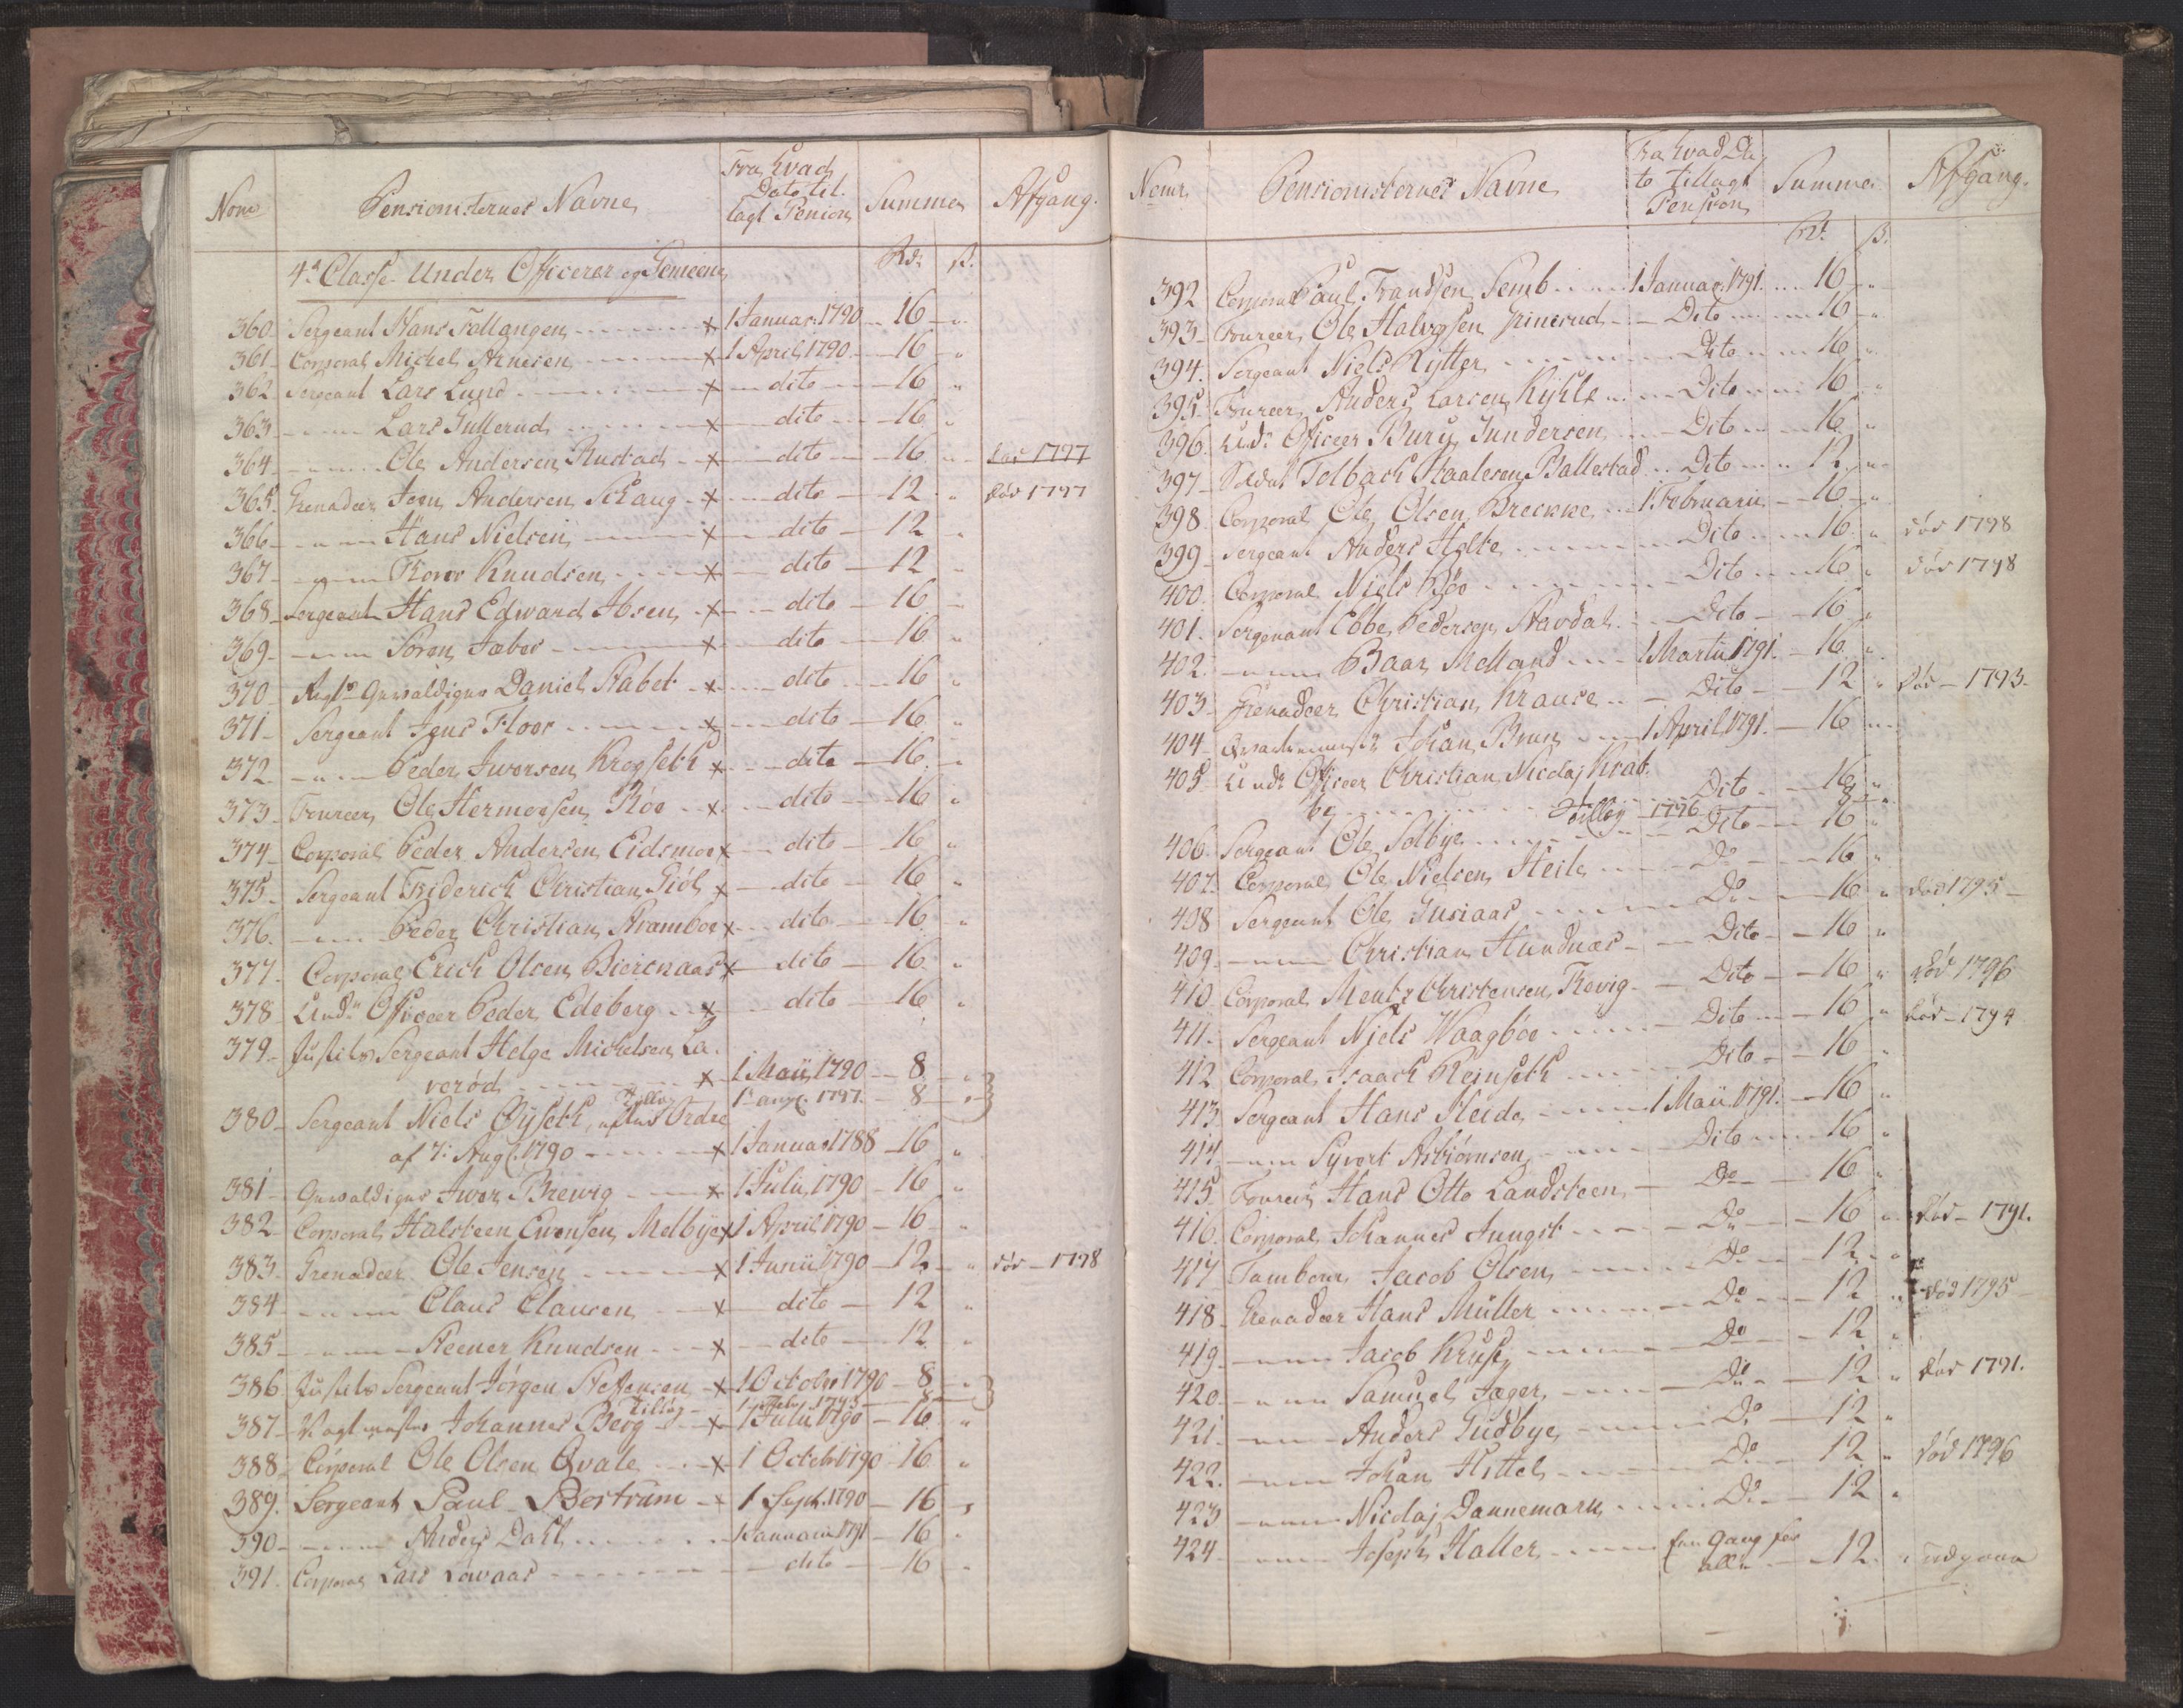 Nom
Pensionisternes Navne
Fra hvad
Dato til-
lagt Pension
Summen
Afgang.
Rd. ß.
4de Classe Under Officerer og Gemeene
360. Sergeant Hans Fallangen x 1 Januar. 1790 16 "
361. Corporal Michel Arnesen x 1 April 1790 16 "
362. Sergeant Lars Lund x dito 16 "
363. Lars Gullerud x dito 16 "
364. Ole Andersen Rustad x dito 16 " død 1797
365. Grenadeer Jern Andersen Schaug x dito 12 " død 1797
366. Hans Nielsen x dito 12 "
367. Thoer Knudsen x dito 12 "
368. Sergeant Hans Edward Ibsen x dito 16 "
369. Søren Faber x dito 16 "
370. Regts Gewaldiger Daniel Stabel x dito 16 "
371. Sergeant Jens Floor x dito 16 "
372. Peder Iwersen Krogseth x dito 16 "
373. Foureer Ole Hermoesen Röe x dito 16 "
374. Corporal Peder Andersen Eidsmoe x dito 16 "
375. Sergeant Friderich Christian Giöl x dito 16 "
376. Peder Christian Aramboe x dito 16 "
377. Corporal Erich Olsen Biercnaas x dito 16 "
378. Undr Officeer Peder Edeberg x dito 16 "
379. Justits Sergeant Helge Michelsen La-
verød x 1 Maii 1790 8 "
Tillæg 1 aug. 1797. 8 "
380. Sergeant Niels Öyseth, efter Ordre
af 7. Aug. 1790 x 1 Januar 1788 16 "
381. Gewaldiger Iwer Brewig x 1 Julii 1790 16 "
382. Corporal Halsteen Evensen Melbye x 1 April 1790 16 "
383. Grenadeer Ole Jensen x 1 Junii 1790 12 " død 1798
384. Claus Clausen x dito 12 "
385. Steener Knudsen x dito 12 "
386. Justits Sergeant Jörgen Steffensen x 1 Octobr 1790 8 "
Tillæg 8
387. Vagtmester Johannes Berg x 1 Julii 1790 16 "
388. Corporal Ole Olsen Qvale x 1 Octobr 1790 16 "
389. Sergeant Paul Bertrum x 1 Sept. 1790 16 "
390. Anders Dahl 1 Januarii 1791 16 "
391. Corporal Lars Lowaas dito 16 "
Nomr.
Pensionisternes Navne
Fra hvad Da
to tillagt
Pension
Summa
Afgang.
Rd. ß.
392. Corporal Paul Frandsen Semb 1 Januar. 1791. 16 "
393. Foureer Ole Halvorsen Grinerud Dito 16 "
394. Sergeant Niels Rytter Dito 16 "
395. Foureer Anders Larsen Kyhle Dito 16 "
396. Undr Officeer Bury Gundersen Dito 16 "
397. Soldat Tolbach Staalesen Ballestad Dito 12 "
398. Corporal Ole Olsen Brecke 1 Februarii 16 "
399. Sergeant Anders Holte Dito 16 " død 1798
400. Corporal Niels Böe Dito 16 " død 1798
401. Sergeant Ebbe Pedersen Aavdal Dito 16 "
402. Baar Melland 1 Martii 1791. 16 "
403. Grenadeer Christian Krause Dito 12 " død 1793.
404. Qvarteermestr Johan Brun 1 April 1791. 16 "
405. Undr Officeer Christian Nicolaj Krab-
be Dito 16 "
Tillæg 1796 8 "
406. Sergeant Ole Solbye Dito 16 "
407. Corporal Ole Nielsen Heile Do 16 "
408. Sergeant Ole Gusiaas Do 16 " død 1795
409. Christian Hundnæs Dito 16 "
410. Corporal Mentz Christensen Trevig Dito 16 " død 1796
411. Sergeant Niels Waagböe Dito 16 " død 1794
412. Corporal Isaach Reinseth Dito 16 "
413. Sergeant Hans Heide 1 Maii 1791. 16 "
414. Syvert Asbiörnsen Dito 16 "
415. Foureer Hans Otto Landsteen Do 16 "
416. Corporal Johannes Jungst Do 16 " død 1791.
417. Tambour Jacob Olsen Do 12 "
418. Grenadeer Hans Müller Do 12 " død 1795
419. Jacob Kruse Do 12 "
420. Samuel Jæger Do 12 " død 1791.
421. Anders Gudbye Do 12 "
422. Johan Hittel Do 12 " død 1796
423. Nicolaj Dannemark Do 12 "
424. Joseph Haller Een Gang for
alle 12. "